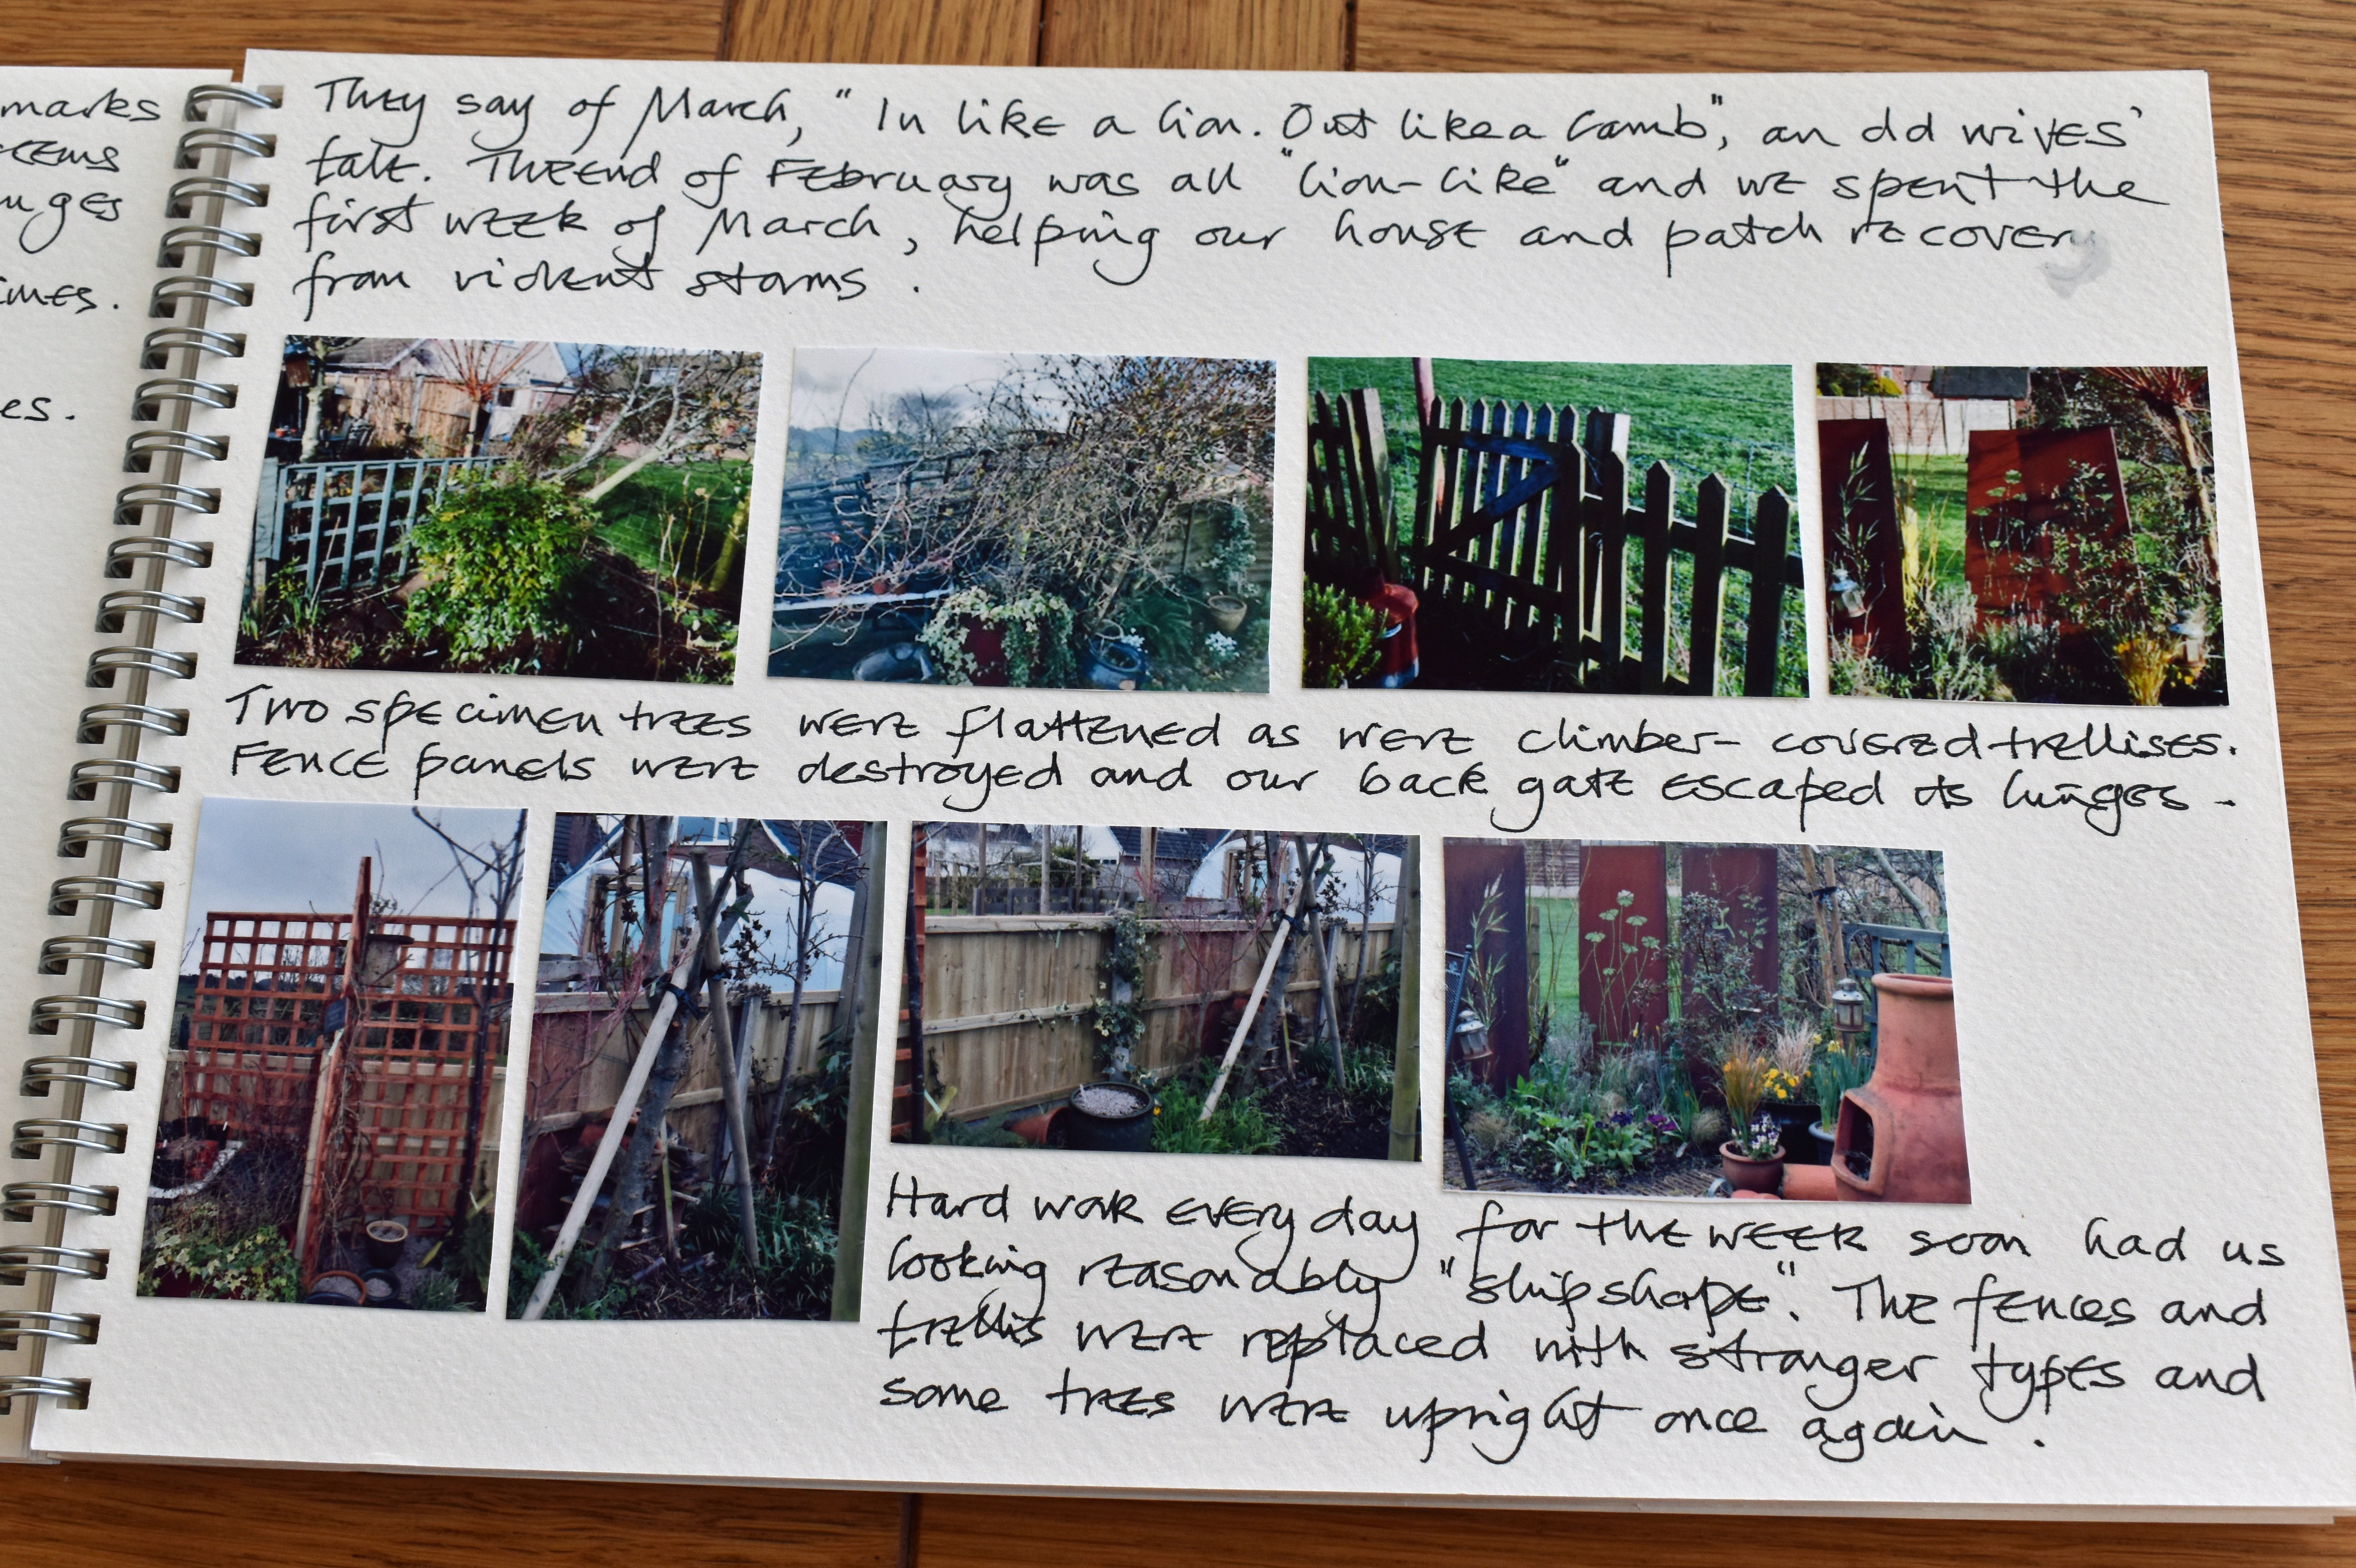 marks
uges
imes.
es.
They say of March, "In like a lion. Out like a Lamb", an old wives'
tale. The end of February was all "lion-like" and we spent the
first week of March, helping our house and patch recover
from violent storms.
Two specimen trees were flattened as were climber-covered trellises.
Fence panels were destroyed and our back gate escaped its hinges -
Hard work every day for the week soon had us
looking reasonably "shipshape". The fences and
trellis were replaced with stronger types and
some trees were upright once again.